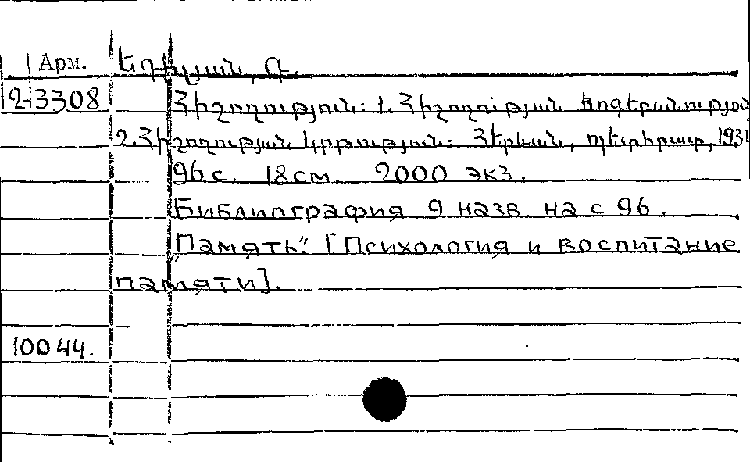 Арм. Եդիլյան, Գ.
2-3308 Հիշողություն: 1. Հիշողության հոգեբանություն
2. Հիշողության կրթություն: Հերևան, պետհրատ, 1931
96 с. 18 см. 2000 экз.
Библиография 9 назв. на с 96.
"Память". [Психология и воспитание
памяти].
10044.